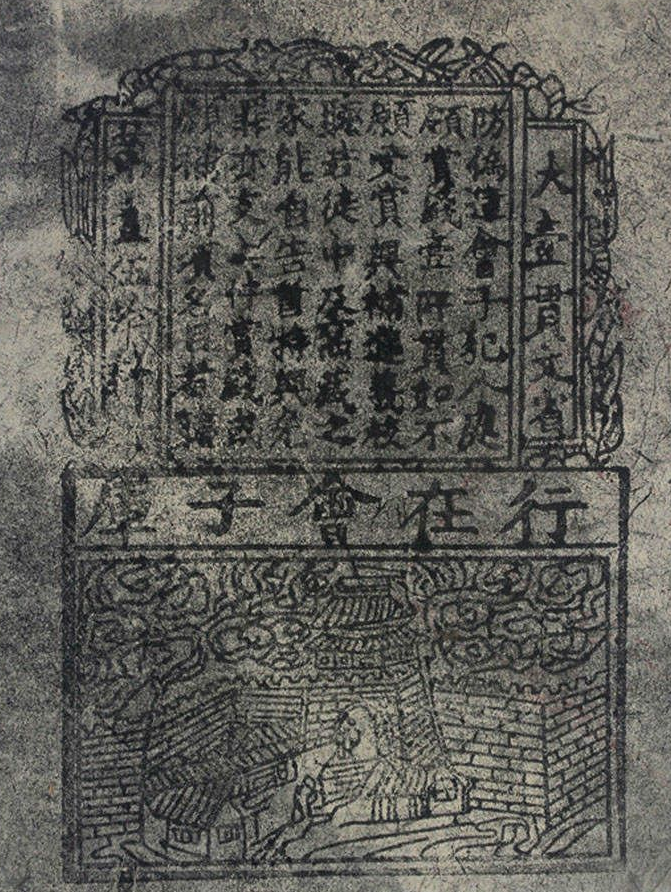 大壹貫文省
防偽造會子犯人處
領賞錢壹阡貫如不
願文賞與補進義校
聽若徒中及窩藏之
家能自告首特與免
罪亦支上件賞錢或
願補前項名目者
第料
行在會子庫